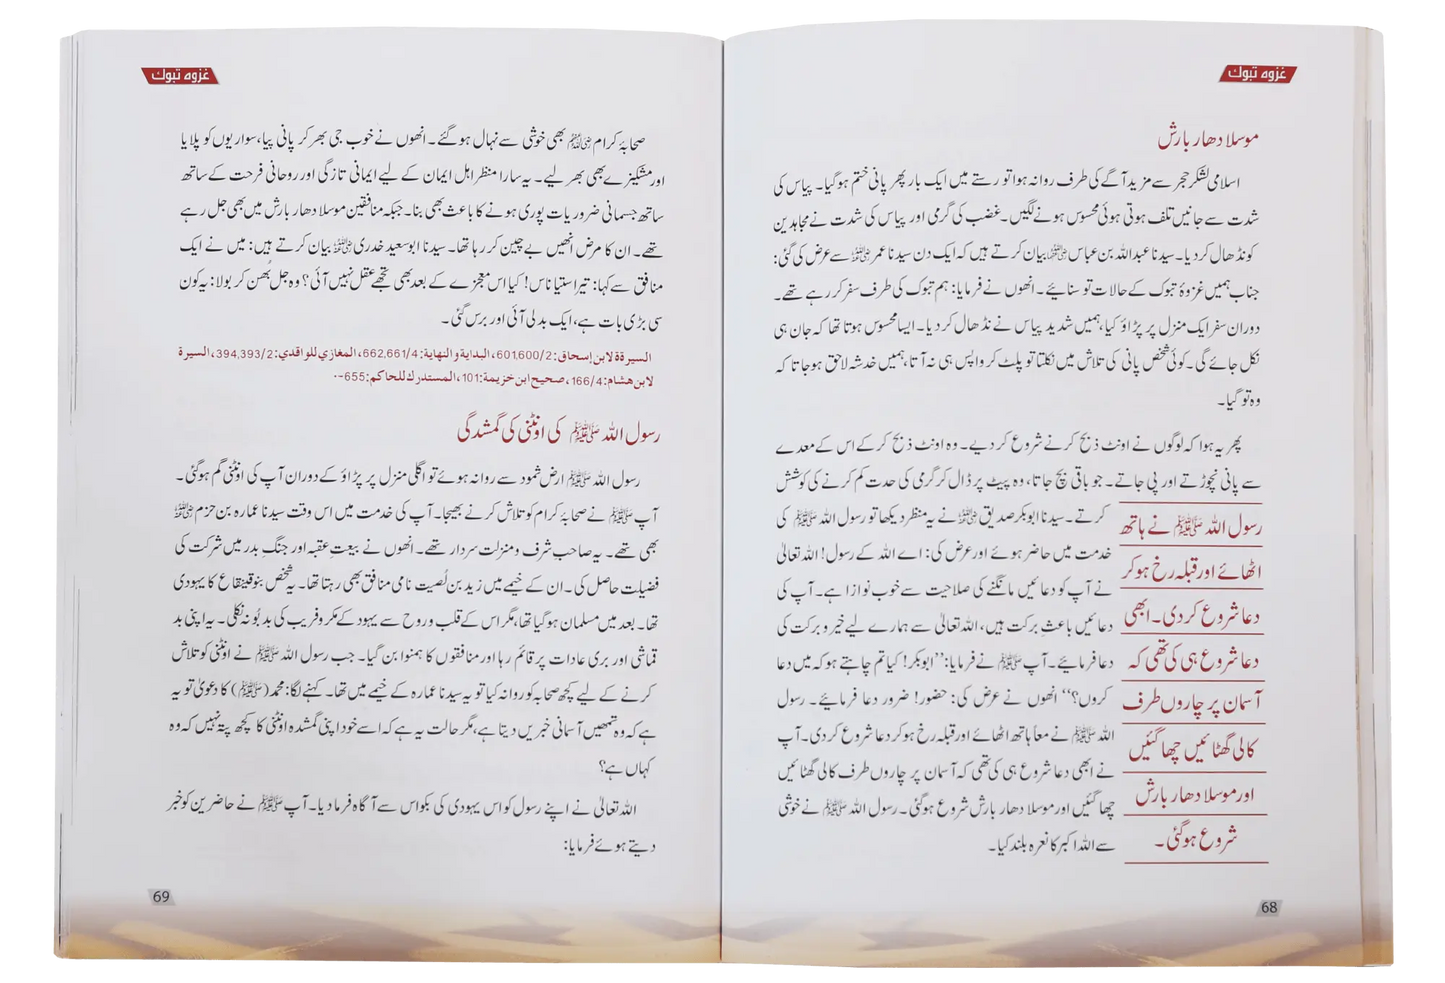 غزوہ تبوک
موسلا دھار بارش
اسلامی لشکر حجر سے مزید آگے کی طرف روانہ ہوا تو رستے میں ایک بار پھر پانی ختم ہو گیا۔ پیاس کی
شدت سے جانیں تلف ہوتی ہوئی محسوس ہونے لگیں۔ غضب کی گرمی اور پیاس کی شدت نے مجاہدین
کو نڈھال کر دیا۔ سیدنا عبداللہ بن عباس رضی اللہ عنہما بیان کرتے ہیں کہ ایک دن سیدنا عمر رضی اللہ عنہ سے عرض کی گئی:
جناب ہمیں غزوۂ تبوک کے حالات تو سنائیے۔ انھوں نے فرمایا: ہم تبوک کی طرف سفر کر رہے تھے۔
دوران سفر ایک منزل پر پڑاؤ کیا، ہمیں شدید پیاس نے نڈھال کر دیا۔ ایسا محسوس ہوتا تھا کہ جان ہی
نکل جائے گی۔ کوئی شخص پانی کی تلاش میں نکلتا تو پلٹ کر واپس ہی نہ آتا، ہمیں خدشہ لاحق ہو جاتا کہ
وہ تو گیا۔
پھر یہ ہوا کہ لوگوں نے اونٹ ذبح کرنے شروع کر دیے۔ وہ اونٹ ذبح کر کے اس کے معدے
سے پانی نچوڑتے اور پی جاتے۔ جو باقی بچ جاتا، وہ پیٹ پر ڈال کر گرمی کی حدت کم کرنے کی کوشش
کرتے۔ سیدنا ابوبکر صدیق رضی اللہ عنہ نے یہ منظر دیکھا تو رسول اللہ ﷺ کی
خدمت میں حاضر ہوئے اور عرض کی: اے اللہ کے رسول! اللہ تعالیٰ
نے آپ کو دعائیں مانگنے کی صلاحیت سے خوب نوازا ہے۔ آپ کی
دعائیں باعثِ برکت ہیں، اللہ تعالیٰ سے ہمارے لیے خیر و برکت کی
دعا فرمائیے۔ آپ ﷺ نے فرمایا: ’’ابوبکر! کیا تم چاہتے ہو کہ میں دعا
کروں؟‘‘ انھوں نے عرض کی: حضور! ضرور دعا فرمائیے۔ رسول
اللہ ﷺ نے معاً ہاتھ اٹھائے اور قبلہ رخ ہو کر دعا شروع کر دی۔ آپ
نے ابھی دعا شروع ہی کی تھی کہ آسمان پر چاروں طرف کالی گھٹائیں
چھا گئیں اور موسلا دھار بارش شروع ہو گئی۔ رسول اللہ ﷺ نے خوشی
سے اللہ اکبر کا نعرہ بلند کیا۔
رسول اللہ ﷺ نے ہاتھ
اٹھائے اور قبلہ رخ ہو کر
دعا شروع کر دی۔ ابھی
دعا شروع ہی کی تھی کہ
آسمان پر چاروں طرف
کالی گھٹائیں چھا گئیں
اور موسلا دھار بارش
شروع ہو گئی۔
68
غزوہ تبوک
صحابۂ کرام رضی اللہ عنہم بھی خوشی سے نہال ہو گئے۔ انھوں نے خوب جی بھر کر پانی پیا، سواریوں کو پلایا
اور مشکیزے بھی بھر لیے۔ یہ سارا منظر اہل ایمان کے لیے ایمانی تازگی اور روحانی فرحت کے ساتھ
ساتھ جسمانی ضروریات پوری ہونے کا باعث بھی بنا۔ جبکہ منافقین موسلا دھار بارش میں بھی جل رہے
تھے۔ ان کا مرض انھیں بے چین کر رہا تھا۔ سیدنا ابوسعید خدری رضی اللہ عنہ بیان کرتے ہیں: میں نے ایک
منافق سے کہا: تیرا ستیاناس! کیا اس معجزے کے بعد بھی تجھے عقل نہیں آئی؟ وہ جل بُھن کر بولا: یہ کون
سی بڑی بات ہے، ایک بدلی آئی اور برس گئی۔
السیرۃ لابن إسحاق: 601,600/2، البدایۃ والنھایۃ: 662,661/4، المغازي للواقدي: 394,393/2، السیرۃ
لابن ھشام: 166/4، صحیح ابن خزیمۃ: 101، المستدرك للحاکم: 655-
رسول اللہ ﷺ کی اونٹنی کی گمشدگی
رسول اللہ ﷺ ارض ثمود سے روانہ ہوئے تو اگلی منزل پر پڑاؤ کے دوران آپ کی اونٹنی گم ہو گئی۔
آپ ﷺ نے صحابۂ کرام کو تلاش کرنے بھیجا۔ آپ کی خدمت میں اس وقت سیدنا عمارہ بن حزم رضی اللہ عنہ
بھی تھے۔ یہ صاحب شرف و منزلت سردار تھے۔ انھوں نے بیعتِ عقبہ اور جنگِ بدر میں شرکت کی
فضیلت حاصل کی۔ ان کے خیمے میں زید بن لُصیت نامی منافق بھی رہتا تھا۔ یہ شخص بنو قینقاع کا یہودی
تھا۔ بعد میں مسلمان ہو گیا تھا، مگر اس کے قلب و روح سے یہود کے مکر و فریب کی بدبُو نہ نکلی۔ یہ اپنی بد
قماشی اور بری عادات پر قائم رہا اور منافقوں کا ہمنوا بن گیا۔ جب رسول اللہ ﷺ نے اونٹنی کو تلاش
کرنے کے لیے کچھ صحابہ کو روانہ کیا تو یہ سیدنا عمارہ کے خیمے میں تھا۔ کہنے لگا: محمد (ﷺ) کا دعویٰ تو یہ
ہے کہ وہ تمھیں آسمانی خبریں دیتا ہے، مگر حالت یہ ہے کہ اسے خود اپنی گمشدہ اونٹنی کا کچھ پتہ نہیں کہ وہ
کہاں ہے؟
اللہ تعالیٰ نے اپنے رسول کو اس یہودی کی بکواس سے آگاہ فرما دیا۔ آپ ﷺ نے حاضرین کو خبر
دیتے ہوئے فرمایا:
69